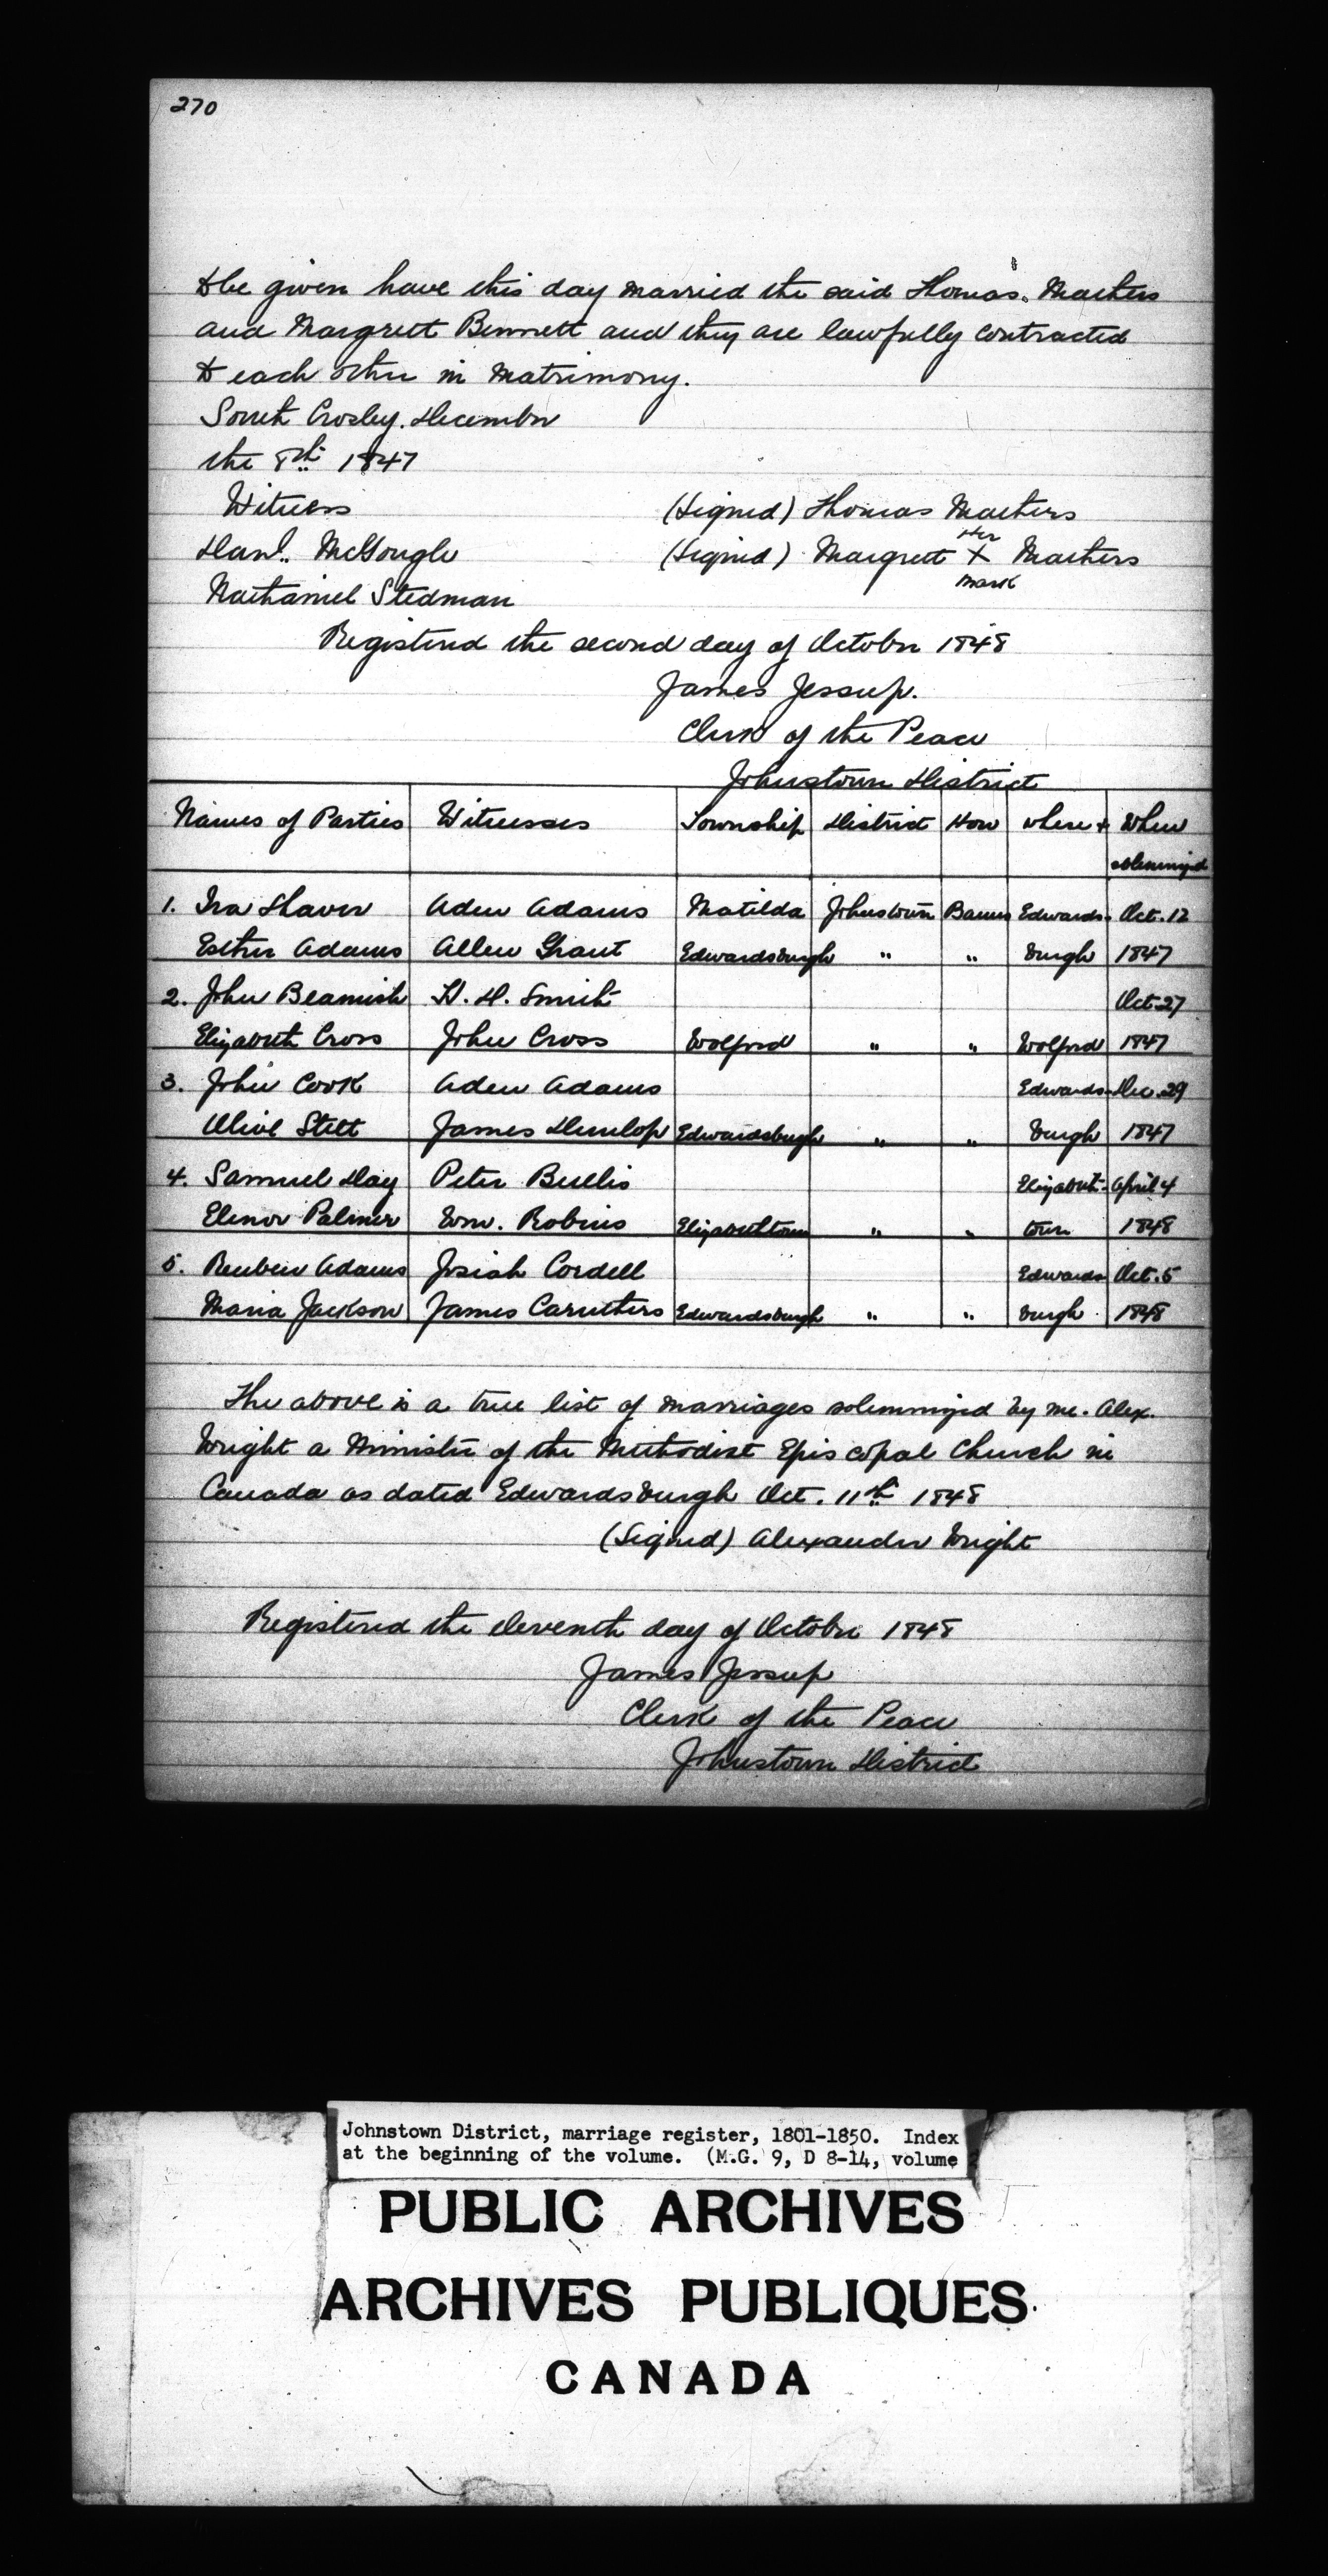 270
to be given have this day married the said Thomas. Mathers
and Margrett Bennett and they are lawfully contracted
to each other in Matrimony.
South Crosby. December
the 8th 1847
Witness (Signed) Thomas Mathers
Danl. McGough (Signed) Margrett Her X Mark Mathers
Nathaniel Stedman
Registered the second day of October 1848
James Jessup.
Clerk of the Peace
Johnstown District
Names of Parties Witnesses Township District How where + When
solemnized
1. Ira Shaver Aden Adams Matilda Johnstown Banns Edwards- Oct. 12
Esther Adams Allen Grant Edwardsburgh " " burgh 1847
2. John Beamish H. D. Smith Oct 27
Elizabeth Cross John Cross Wolford " " Wolford 1847
3. John Cook Aden Adams Edwards- Dec. 29
Olive Stett James Dunlop Edwardsburgh " " burgh 1847
4. Samuel Day Peter Bullis Elizabeth- April 4
Elenor Palmer Wm. Robins Elizabethtown " " town 1848
5. Reuben Adams Josiah Cordell Edwards Oct. 5
Maria Jackson James Caruthers Edwardsburgh " " burgh 1848
The above is a true list of marriages solemnized by me. Alex.
Wright a Minister of the Methodist Episcopal Church in
Canada as dated Edwardsburgh Oct. 11th 1848
(Signed) Alexander Wright
Registered the eleventh day of October 1848
James Jessup
Clerk of the Peace
Johnstown District
Johnstown District, marriage register, 1801-1850. Index
at the beginning of the volume. (M.G. 9, D 8-14, volume
PUBLIC ARCHIVES
ARCHIVES PUBLIQUES
CANADA